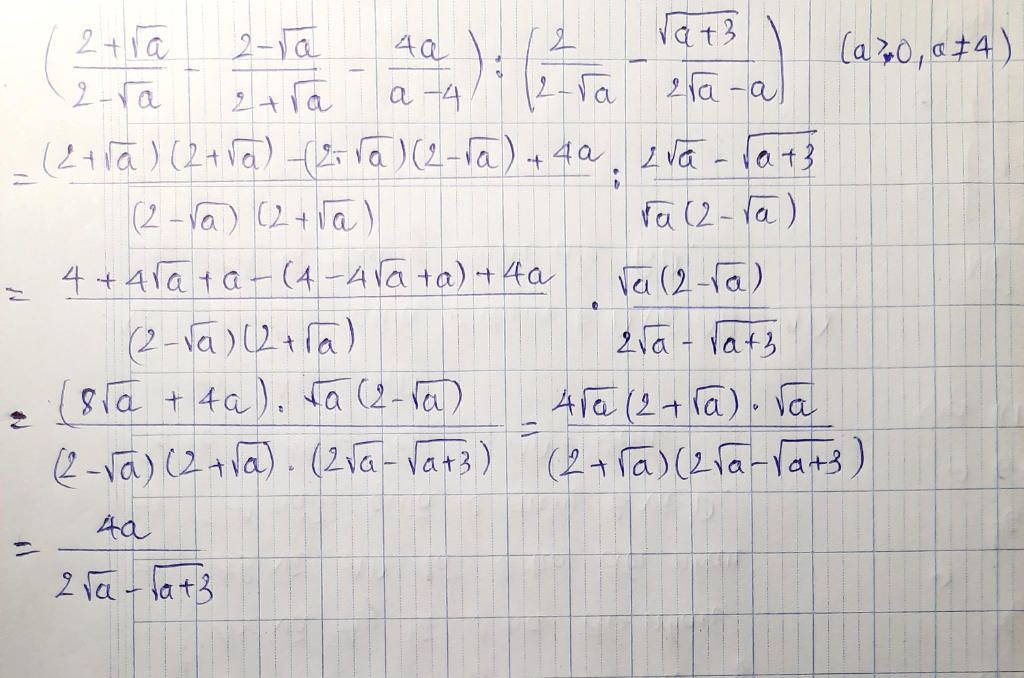 (2+√a / 2-√a - 2-√a / 2+√a - 4a / a-4) : (2 / 2-√a - √a+3 / 2√a-a) (a≥0, a≠4)
= (2+√a)(2+√a) -(2-√a)(2-√a) + 4a / (2-√a)(2+√a) : 2√a - √a+3 / √a(2-√a)
= 4 + 4√a + a - (4 - 4√a + a) + 4a / (2-√a)(2+√a) . √a(2-√a) / 2√a - √a+3
= (8√a + 4a). √a(2-√a) / (2-√a)(2+√a) . (2√a - √a+3) = 4√a(2+√a) . √a / (2+√a)(2√a - √a+3)
= 4a / 2√a - √a+3